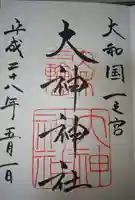 大和国一之宮
大神神社
平成二十八年五月一日